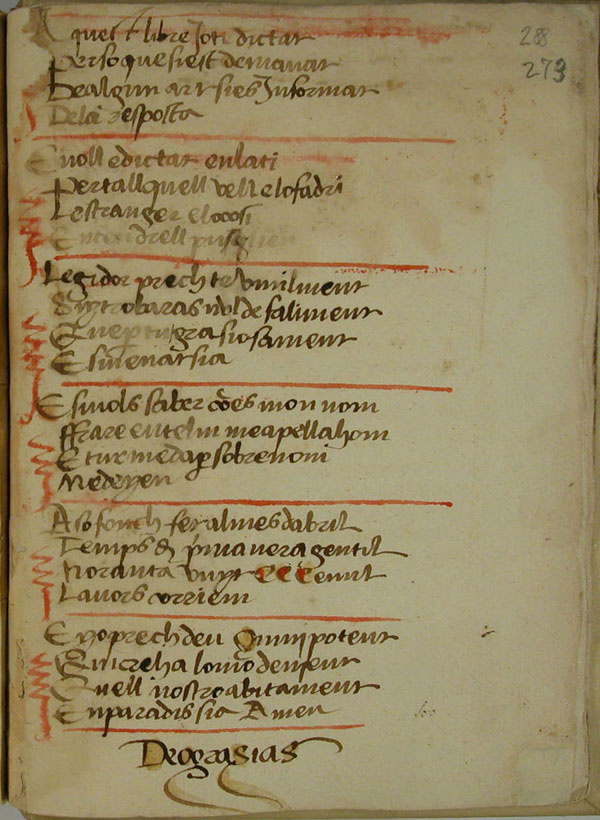 288
273
Aquest libre Joti dictar
Persoquesiest demanar
Dealgun arsies Jnformar
Dela resposta
E voll edictar enlati
Pertallquell vell elofadri
Lestranger elocosi
Entendrell pusquen
Legidor prech te vmilment
Sijtrobaras nuldefaliment
Quepertugrasiosament
Esmenatsia
E sinols saber cões mon nom
ffrare entelm meapellahom
E turmedapsobrenom
Nedeyen
Aso fonch fet almes dabril
Temps d pmaveragentil
Noranta vuyt CCC emil
Lavors corriem
E yoprechdeu Omnipotent
Quicreha lomo denient
Quell nostroabitament
Enparadis sia Amen
Deograsias